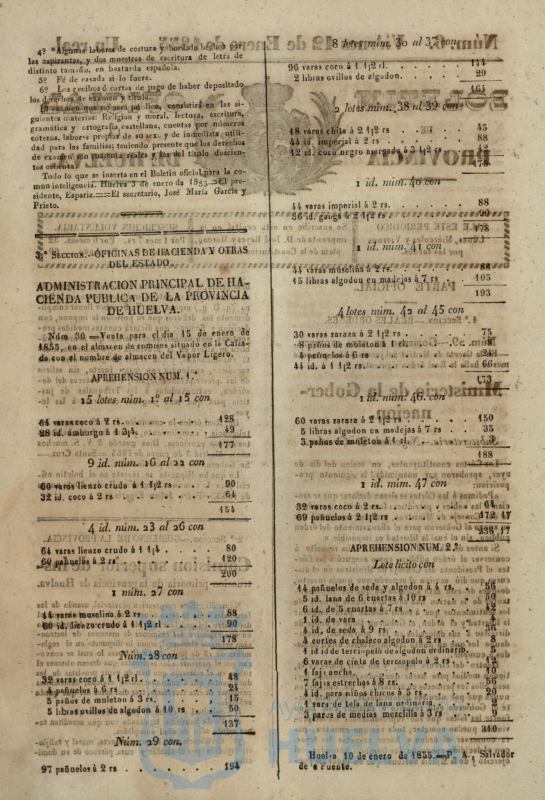 4.º Algunas labores de costura y bordada hechas por
las aspirantas, y dos muestras de escritura de letra de
distinto tamaño, en bastarda española.
5.º Fé de casada si lo fuere.
6.º Los recibos ó cartas de pago de haber depositado
los derechos de exámen y título.
El exámen que no será público, consistirá en las si-
guientes materias: Religion y moral, lectura, escritura,
gramática y ortografía castellana, cuentas por números
enteros, labores propias de su sexo, y de inmediata utili-
dad para las familias; teniendo presente que los derechos
de exámen son cuarenta reales y los del título doscien-
tos ochenta.
Todo lo que se inserta en el Boletin oficial para la co-
mun inteligencia. Huelva 3 de enero de 1855.=El pre-
sidente, Esparis.==El secretario, José María García y
Prieto.
3.ª SECCION.—OFICINAS DE HACIENDA Y OTRAS
DEL ESTADO.
ADMINISTRACION PRINCIPAL DE HA-
CIENDA PUBLICA DE LA PROVINCIA
DE HUELVA.
Núm 30.—Venta para el dia 15 de enero de
1855, en el almacen de comisos situado en la Calza-
da con el nombre de almacen del Vapor Ligero.
APREHENSION NUM. 1.º
15 lotes núm. 1.º al 15 con
64 varas coco á 2 rs. 128
28 id. amburgo á 1 3/4. 49
177
9 id. núm. 16 al 22 con
60 varas lienzo crudo á 1 1/2 rs. 90
32 id. coco á 2 rs. 64
154
4 id. núm. 23 al 26 con
64 varas lienzo crudo á 1 1/4. 80
60 pañuelos á 2 rs. 120
200
1 núm. 27 con
44 varas muselina á 2 rs. 88
60 id. lienzo crudo á 1 1/2 rs. 90
178
Núm. 28 con
32 varas coco á 1 1/2 rl. 48
4 pañuelos á 6 rs. 24
5 paños de muleton á 3 rs. 15
5 libras ovillos de algodon á 10 rs. 50
137
Núm. 29 con.
97 pañuelos á 2 rs 194
8 lotes núm. 30 al 37 con
96 varas coco á 1 1/2 rl. 144
2 libras ovillos de algodon. 20
164
2 lotes núm. 38 al 39 con
18 varas chita á 2 1/2 rs. 45
44 id. imperial á 2 rs. 88
12 id. coco negro sargado á 3 1/2 rs. 42
175
1 id. núm. 40 con
44 varas imperial á 2 rs. 88
36 id. ganga á 2 1/2 rs. 90
178
1 id. núm. 41 con
44 varas muselina á 2 rs. 88
15 libras algodon en madejas á 7 rs. 105
193
4 lotes núm. 42 al 45 con
30 varas zaraza á 2 1/2 rs. 75
8 paños de muleton á 1 rl. 8
4 pañuelos á 6 rs. 24
44 id. á 1 1/2 rs. 66
173
1 id. núm. 46. con
60 varas zaraza á 2 1/2 rs. 150
5 libras algodon en madejas á 7 rs. 35
3 paños de muleton á 1 rl. 3
188
1 id. núm. 47 con
32 varas coco á 2 rs. 64
69 pañuelos á 2 1/2 rs. 172 17
236 17
APREHENSION NUM. 2.º
Lote lícito con
14 pañuelos de seda y algodon á 4 rs. 56
5 id. lana de 6 cuartas á 10 rs. 50
6 id. de 5 cuartas á 7 rs. 42
1 id. de vara
4 id. de seda á 9 rs. 36
4 cortes de chaleco algodon á 2 rs. 8
1 id id de terciopelo de algodon ordinario.
6 varas de cinta de terciopelo á 2 rs. 12
1 faja ancha. 10
7 fajas estrechas á 8 rs. 56
4 id. para niños chicos á 5 rs. 20
1 vara de tela de lana ordinaria. 2
3 pares de medias mezcilla á 3 rs
340
Huelva 10 de enero de 1855.—P. A., Salvador
de la Fuente.